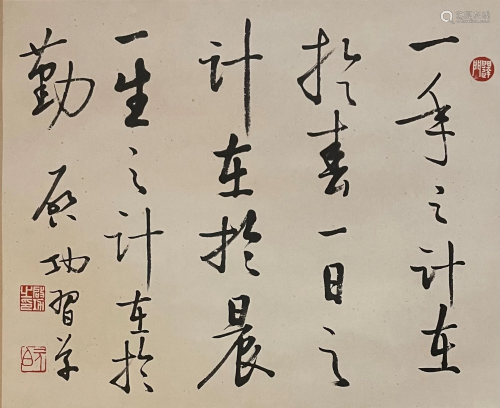 一年之计在
於春一日之
计在於晨
一生之计在於
勤 启功习字